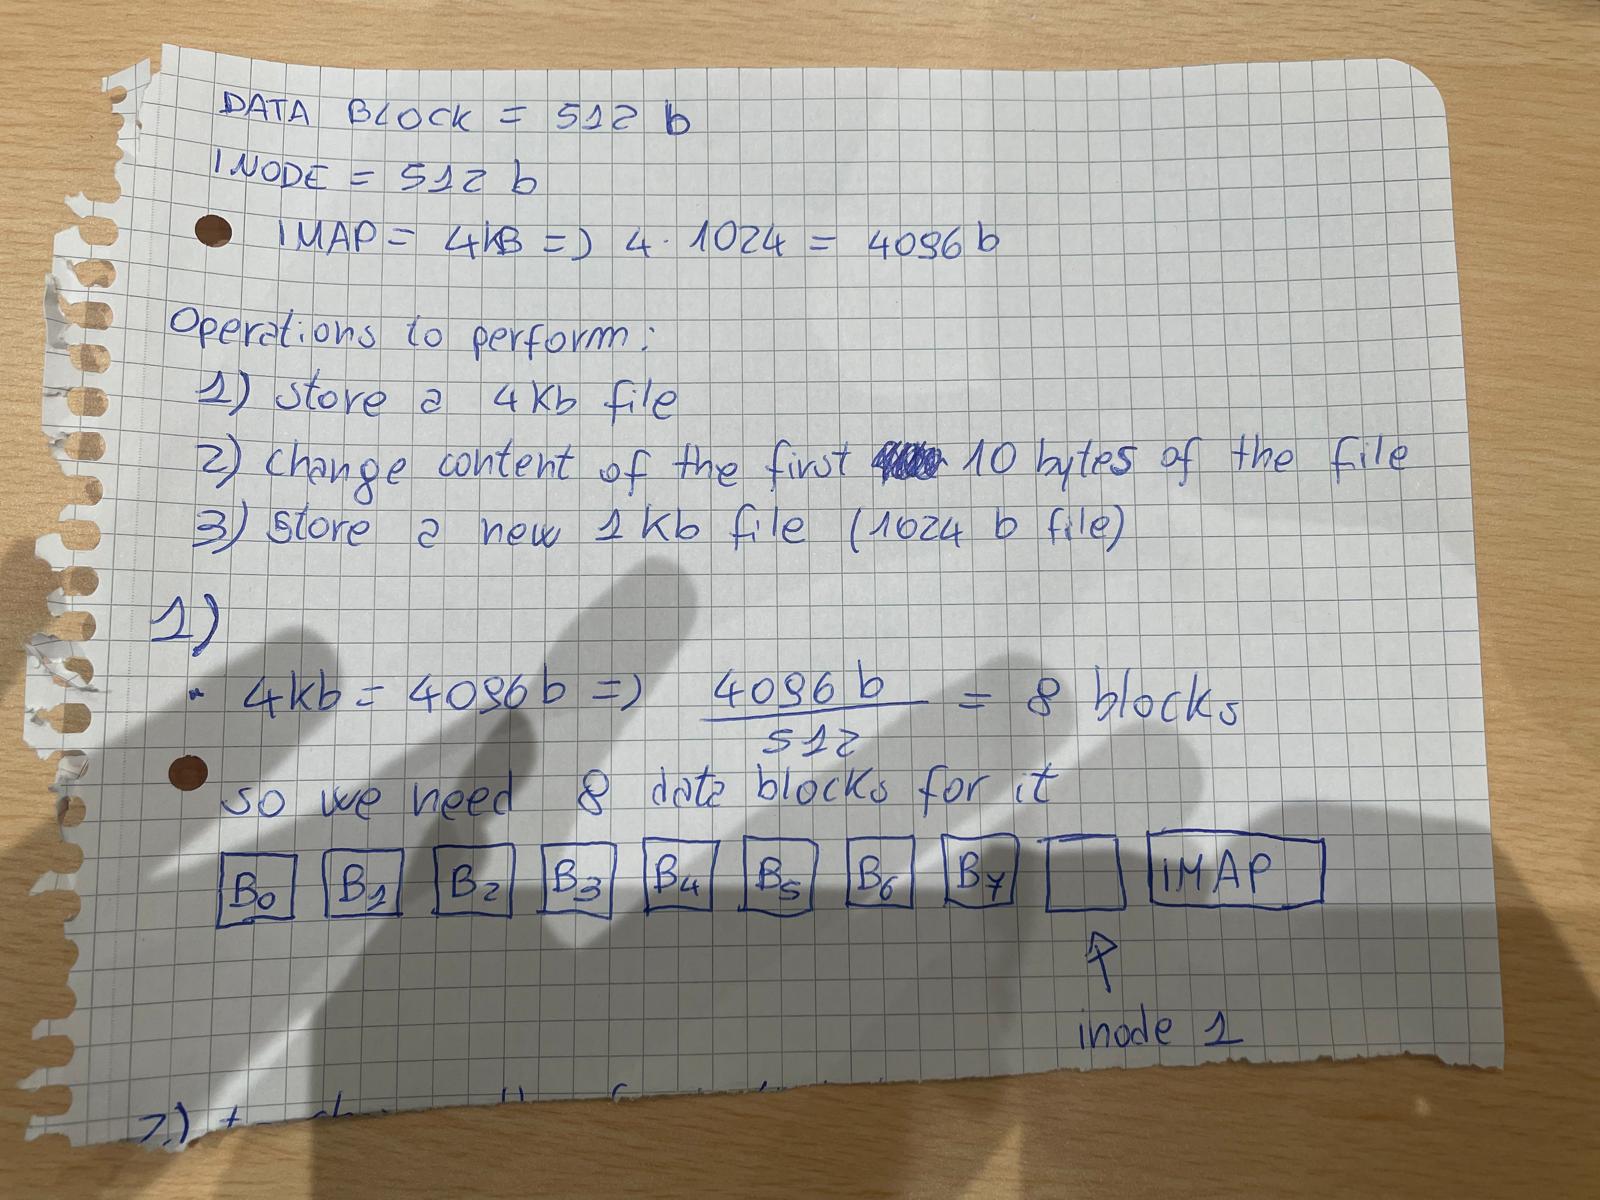 DATA BLOCK = 512 b
INODE = 512 b
IMAP = 4KB => 4 · 1024 = 4096 b
Operations to perform:
1) store a 4Kb file
2) change content of the first 10 bytes of the file
3) store a new 1Kb file (1024 b file)
1)
4kb = 4096b => 4096 b / 512 = 8 blocks
so we need 8 data blocks for it
B0 B1 B2 B3 B4 B5 B6 B7 IMAP
inode 1
2)